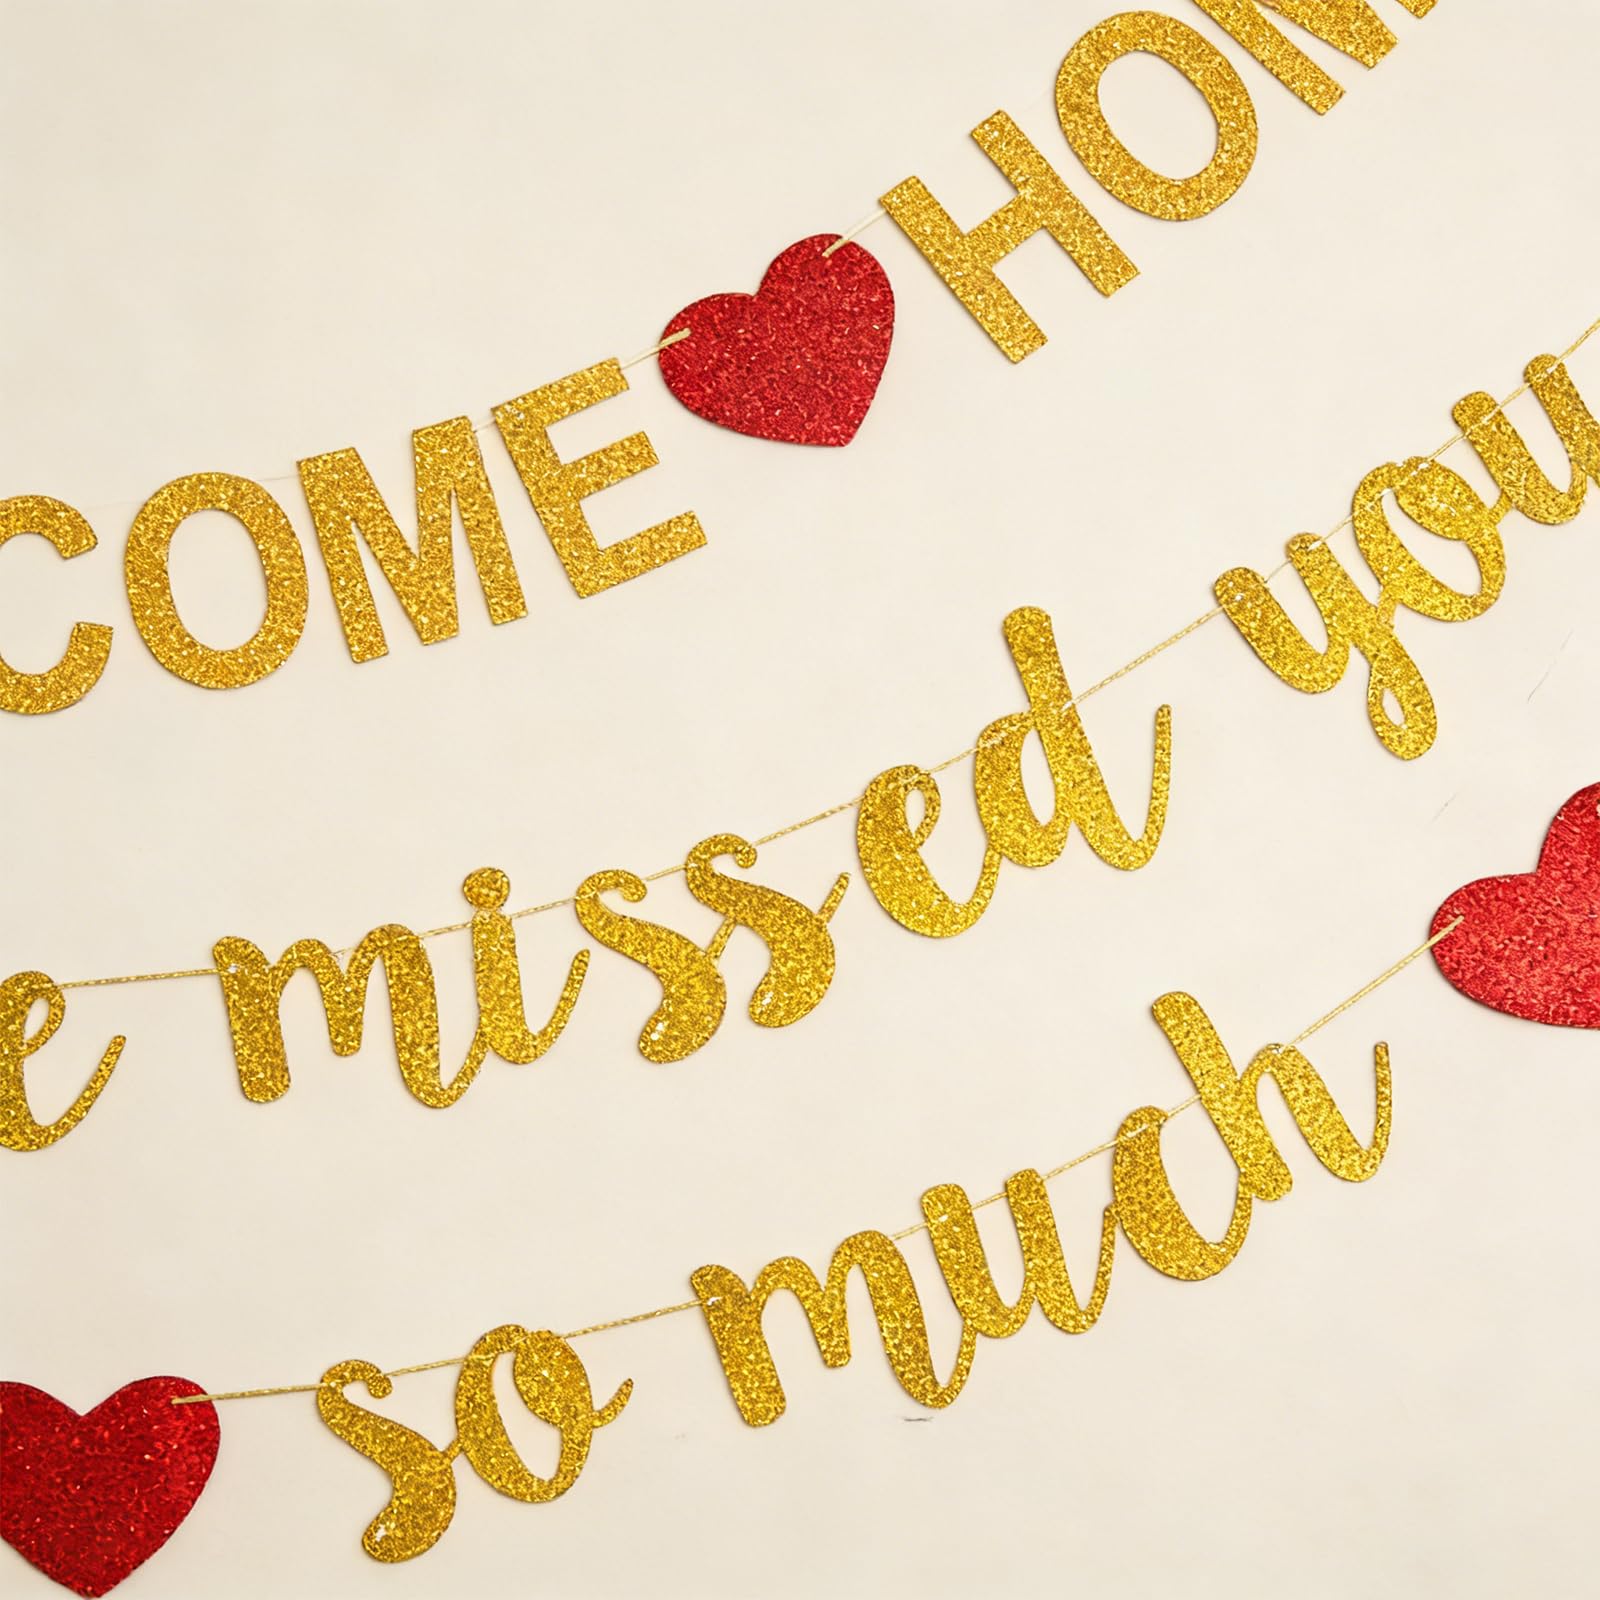 COME HOM
e missed you
so much